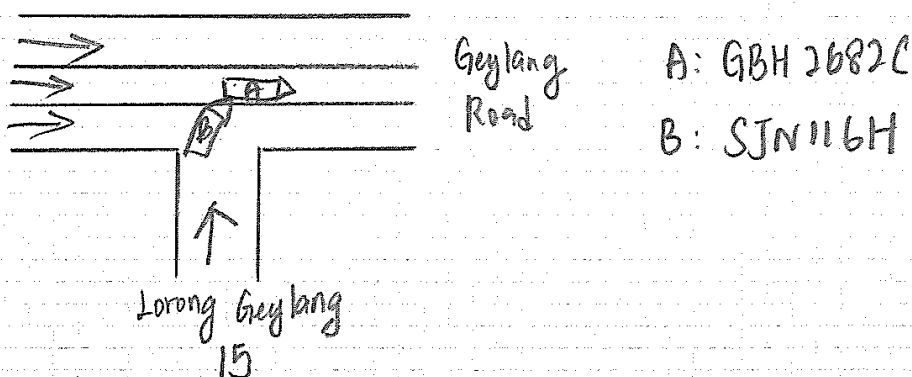 Geylang
Road
A: GBH 2682C
B: SJN116H
A
B
Lorong Geylang
15